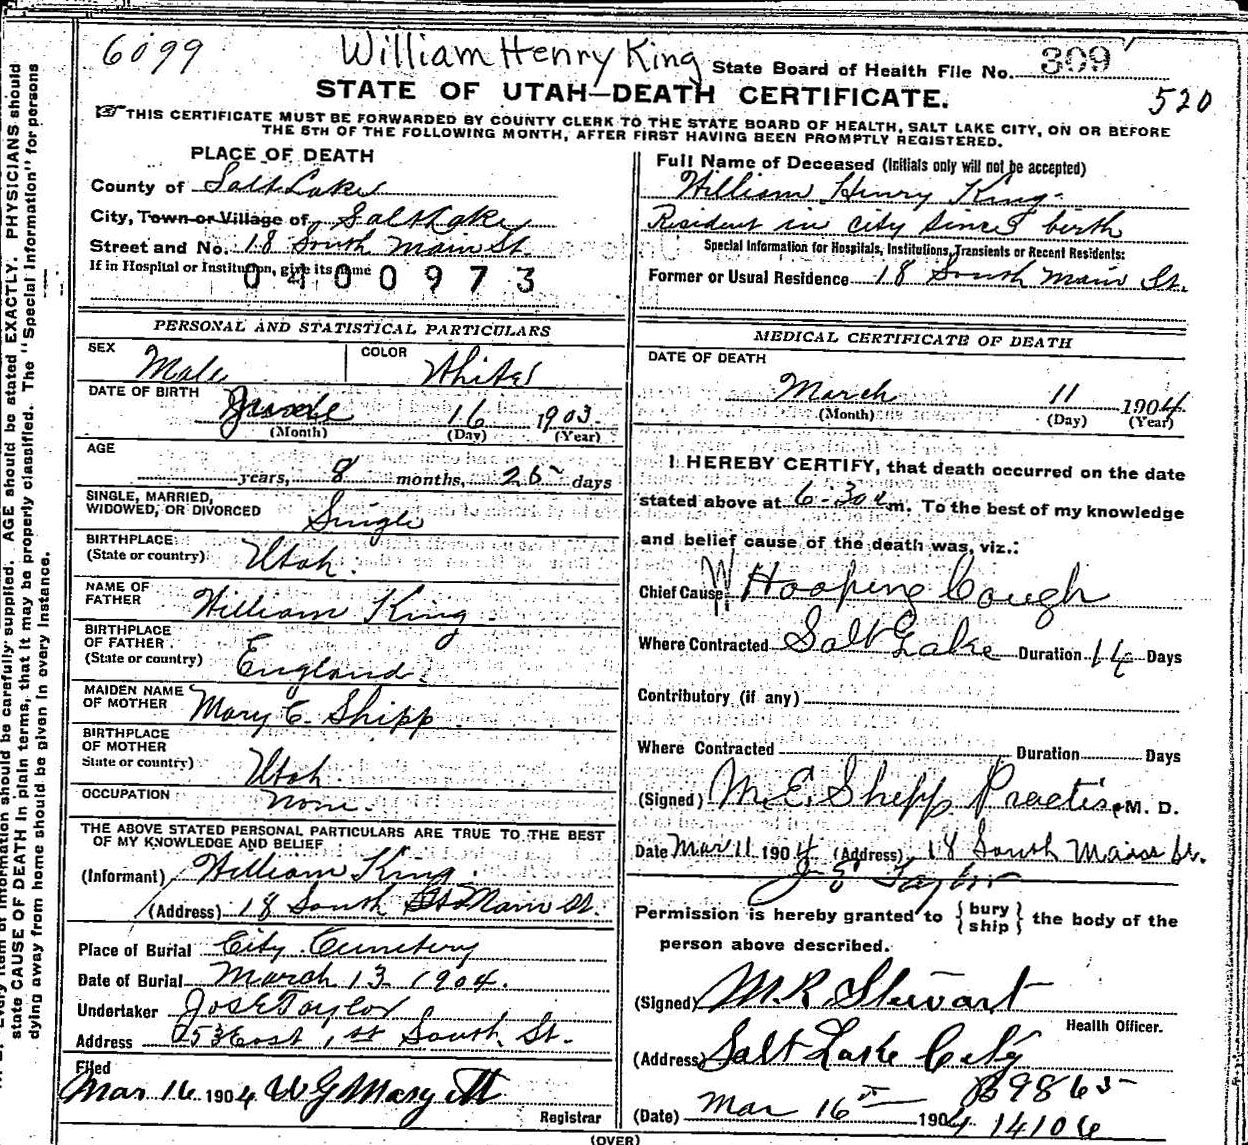 6099 William Henry King State Board of Health File No. 309
STATE OF UTAH—DEATH CERTIFICATE.
520
THIS CERTIFICATE MUST BE FORWARDED BY COUNTY CLERK TO THE STATE BOARD OF HEALTH, SALT LAKE CITY, ON OR BEFORE
THE 5TH OF THE FOLLOWING MONTH, AFTER FIRST HAVING BEEN PROMPTLY REGISTERED.
PLACE OF DEATH
County of Salt Lake
City, Town or Village of Salt Lake
Street and No. 18 South Main St.
If in Hospital or Institution, give its name
0400973
PERSONAL AND STATISTICAL PARTICULARS
SEX Male COLOR White
DATE OF BIRTH June 16 1903.
(Month) (Day) (Year)
AGE
years, 8 months, 25 days
SINGLE, MARRIED,
WIDOWED, OR DIVORCED Single
BIRTHPLACE
(State or country) Utah.
NAME OF
FATHER William King.
BIRTHPLACE
OF FATHER
(State or country) England.
MAIDEN NAME
OF MOTHER Mary E. Shipp
BIRTHPLACE
OF MOTHER
State or country) Utah.
OCCUPATION none.
THE ABOVE STATED PERSONAL PARTICULARS ARE TRUE TO THE BEST
OF MY KNOWLEDGE AND BELIEF
(Informant) William King.
(Address) 18 South Main St.
Place of Burial City Cemetery
Date of Burial March 13 1904.
Undertaker Jos E Taylor
Address 253 East 1st South St.
Filed
Mar 16 1904
Registrar
Full Name of Deceased (Initials only will not be accepted)
William Henry King.
Resident in city since birth
Special Information for Hospitals, Institutions, Transients or Recent Residents:
Former or Usual Residence 18 South Main St.
MEDICAL CERTIFICATE OF DEATH
DATE OF DEATH
March 11 1904
(Month) (Day) (Year)
I HEREBY CERTIFY, that death occurred on the date
stated above at 6-30 a m. To the best of my knowledge
and belief cause of the death was, viz.:
Chief Cause W Hooping Cough
Where Contracted Salt Lake Duration 14 Days
Contributory (if any)
Where Contracted Duration Days
(Signed) M. E. Shipp Practise M. D.
Date Mar 11 1904 (Address) 18 South Main St.
J E Taylor
Permission is hereby granted to { bury
ship } the body of the
person above described.
(Signed) M R Stewart
Health Officer.
(Address) Salt Lake City
B9865
(Date) Mar 16th 1904 14106
(OVER)
state CAUSE OF DEATH in plain terms, that it may be properly classified. The "Special Information" for persons
dying away from home should be given in every instance.
Every item of information should be carefully supplied. AGE should be stated EXACTLY. PHYSICIANS should